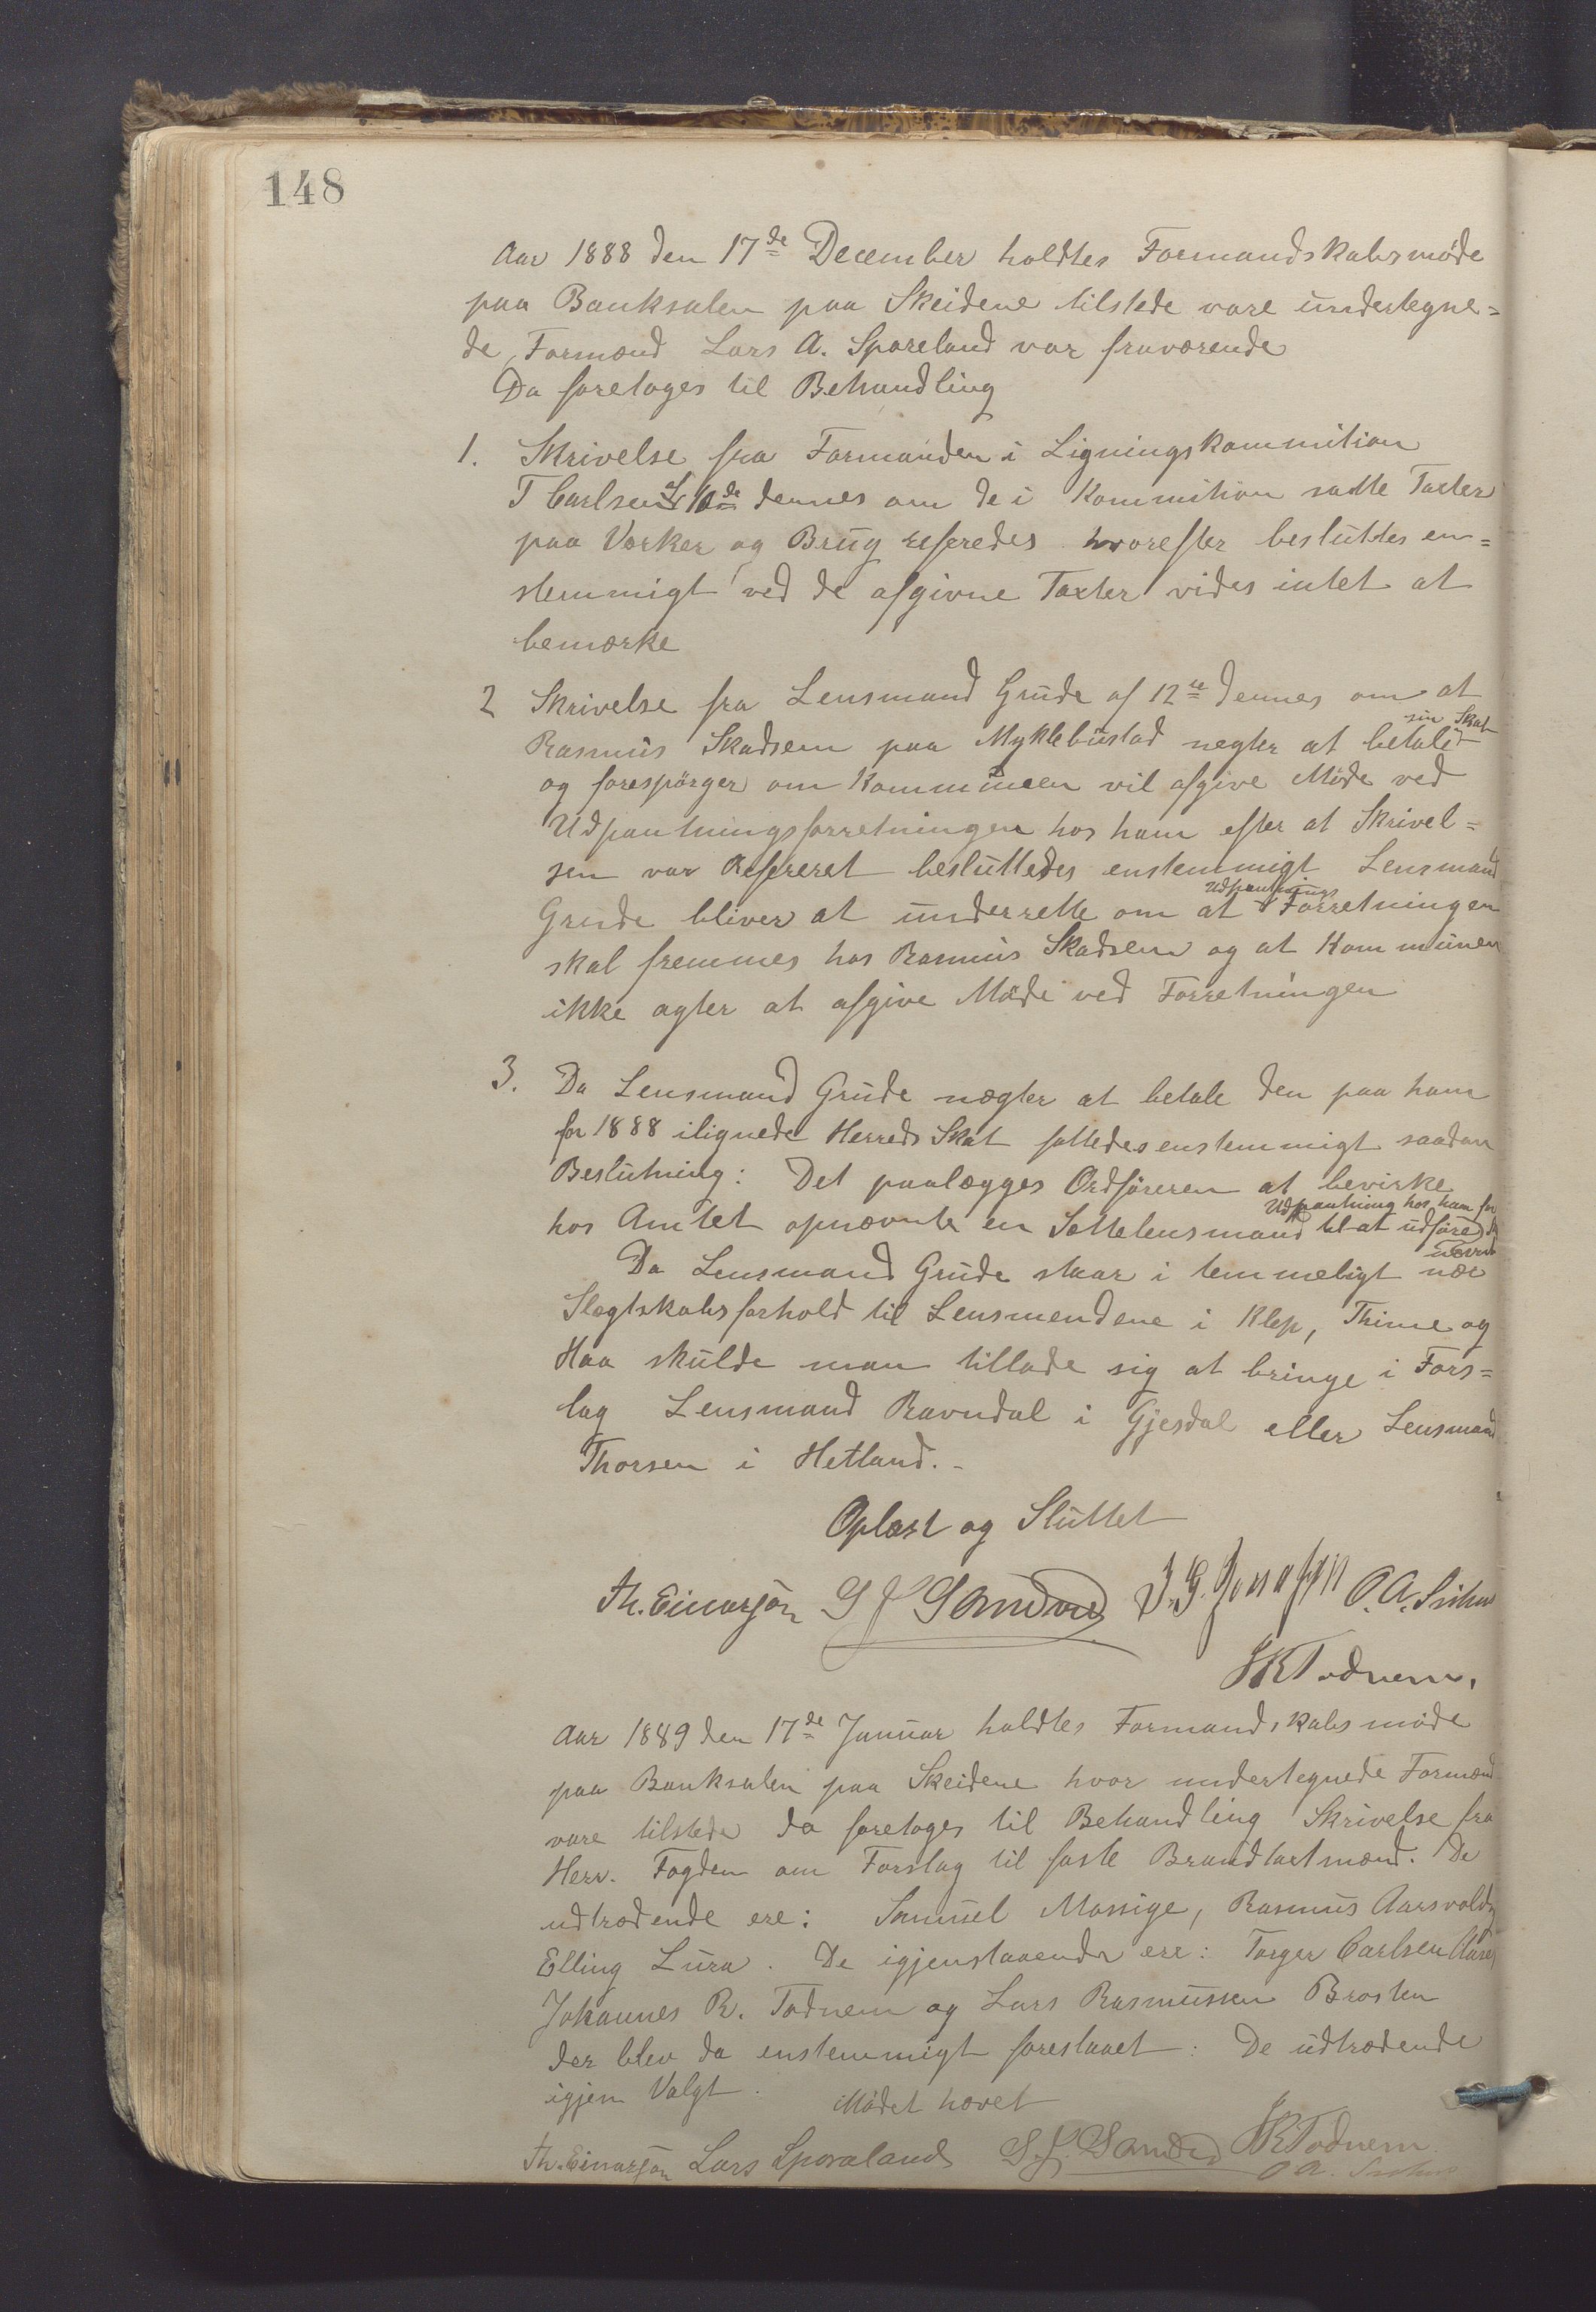 148
Aar 1888 den 17de December holdtes Formandskabsmöde
paa Banksalen paa Skeidene tilstede vare undertegne=
de, Formænd Lars A. Sporeland var fraværende
Da foretoges til Behandling
1. Skrivelse fra Formanden i Ligningskommition
T Carlsen af 10de dennes om de i Kommition satte Taxter
paa Værker og Brug refferedes hvorefter besluttes en=
stemmigt ved de afgivne Taxter vides intet at
bemærke
2 Skrivelse fra Lensmand Grude af 12te dennes om at
Rasmus Skadsem paa Myklebustad negter at betale sin Skat
og forespörger om Kommunen vil afgive Möde ved
Udpantningsforretningen hos ham efter at Skrivel=
sen var Refereret besluttedes enstemmigt Lensmand
Grude bliver at underrette om at Udpantnings Forretningen
skal fremmes hos Rasmus Skadsem og at Kommunen
ikke agter at afgive Möde ved Forretningen
3. Da Lensmand Grude nægter at betale den paa ham
for 1888 ilignede Herreds Skat fattedes enstemmigt saadan
Beslutning: Det paalægges Ordföreren at bevirke
hos Amtet opnævnte en Sættelensmand til at udföre Udpantning hos ham for
Da Lensmand Grude staar i temmeligt nær
Slægtskabsforhold til Lensmendene i Klep, Thime og
Haa skulde man tillade sig at bringe i Fors=
lag Lensmand Ravndal i Gjesdal eller Lensmand
Thorsen i Hetland.-
Oplæst og Sluttet
Th. Einarsön S J Sandved J. G. Jonassen O. A.
JR Todnem.
Aar 1889 den 17de Januar holdtes Formandskabsmöde
paa Banksalen paa Skeidene hvor undertegnede Formænd
vare tilstede da foretoges til Behandling Skrivelse fra
Herr. Fogden om Forslag til faste Brandtaxtmænd. De
udtrædende ere: Samuel Massige, Rasmus Aarsvold
Elling Lura. De igjenstaaende ere: Torger Carlsen
Johannes R. Todnem og Lars Rasmussen Brosten
der blev da enstemmigt foreslaaet: De udtrædende
igjen Valgt.
Mödet hævet
Th. Einarsön Lars Sporaland S. J. Sandved JR Todnem
O A.